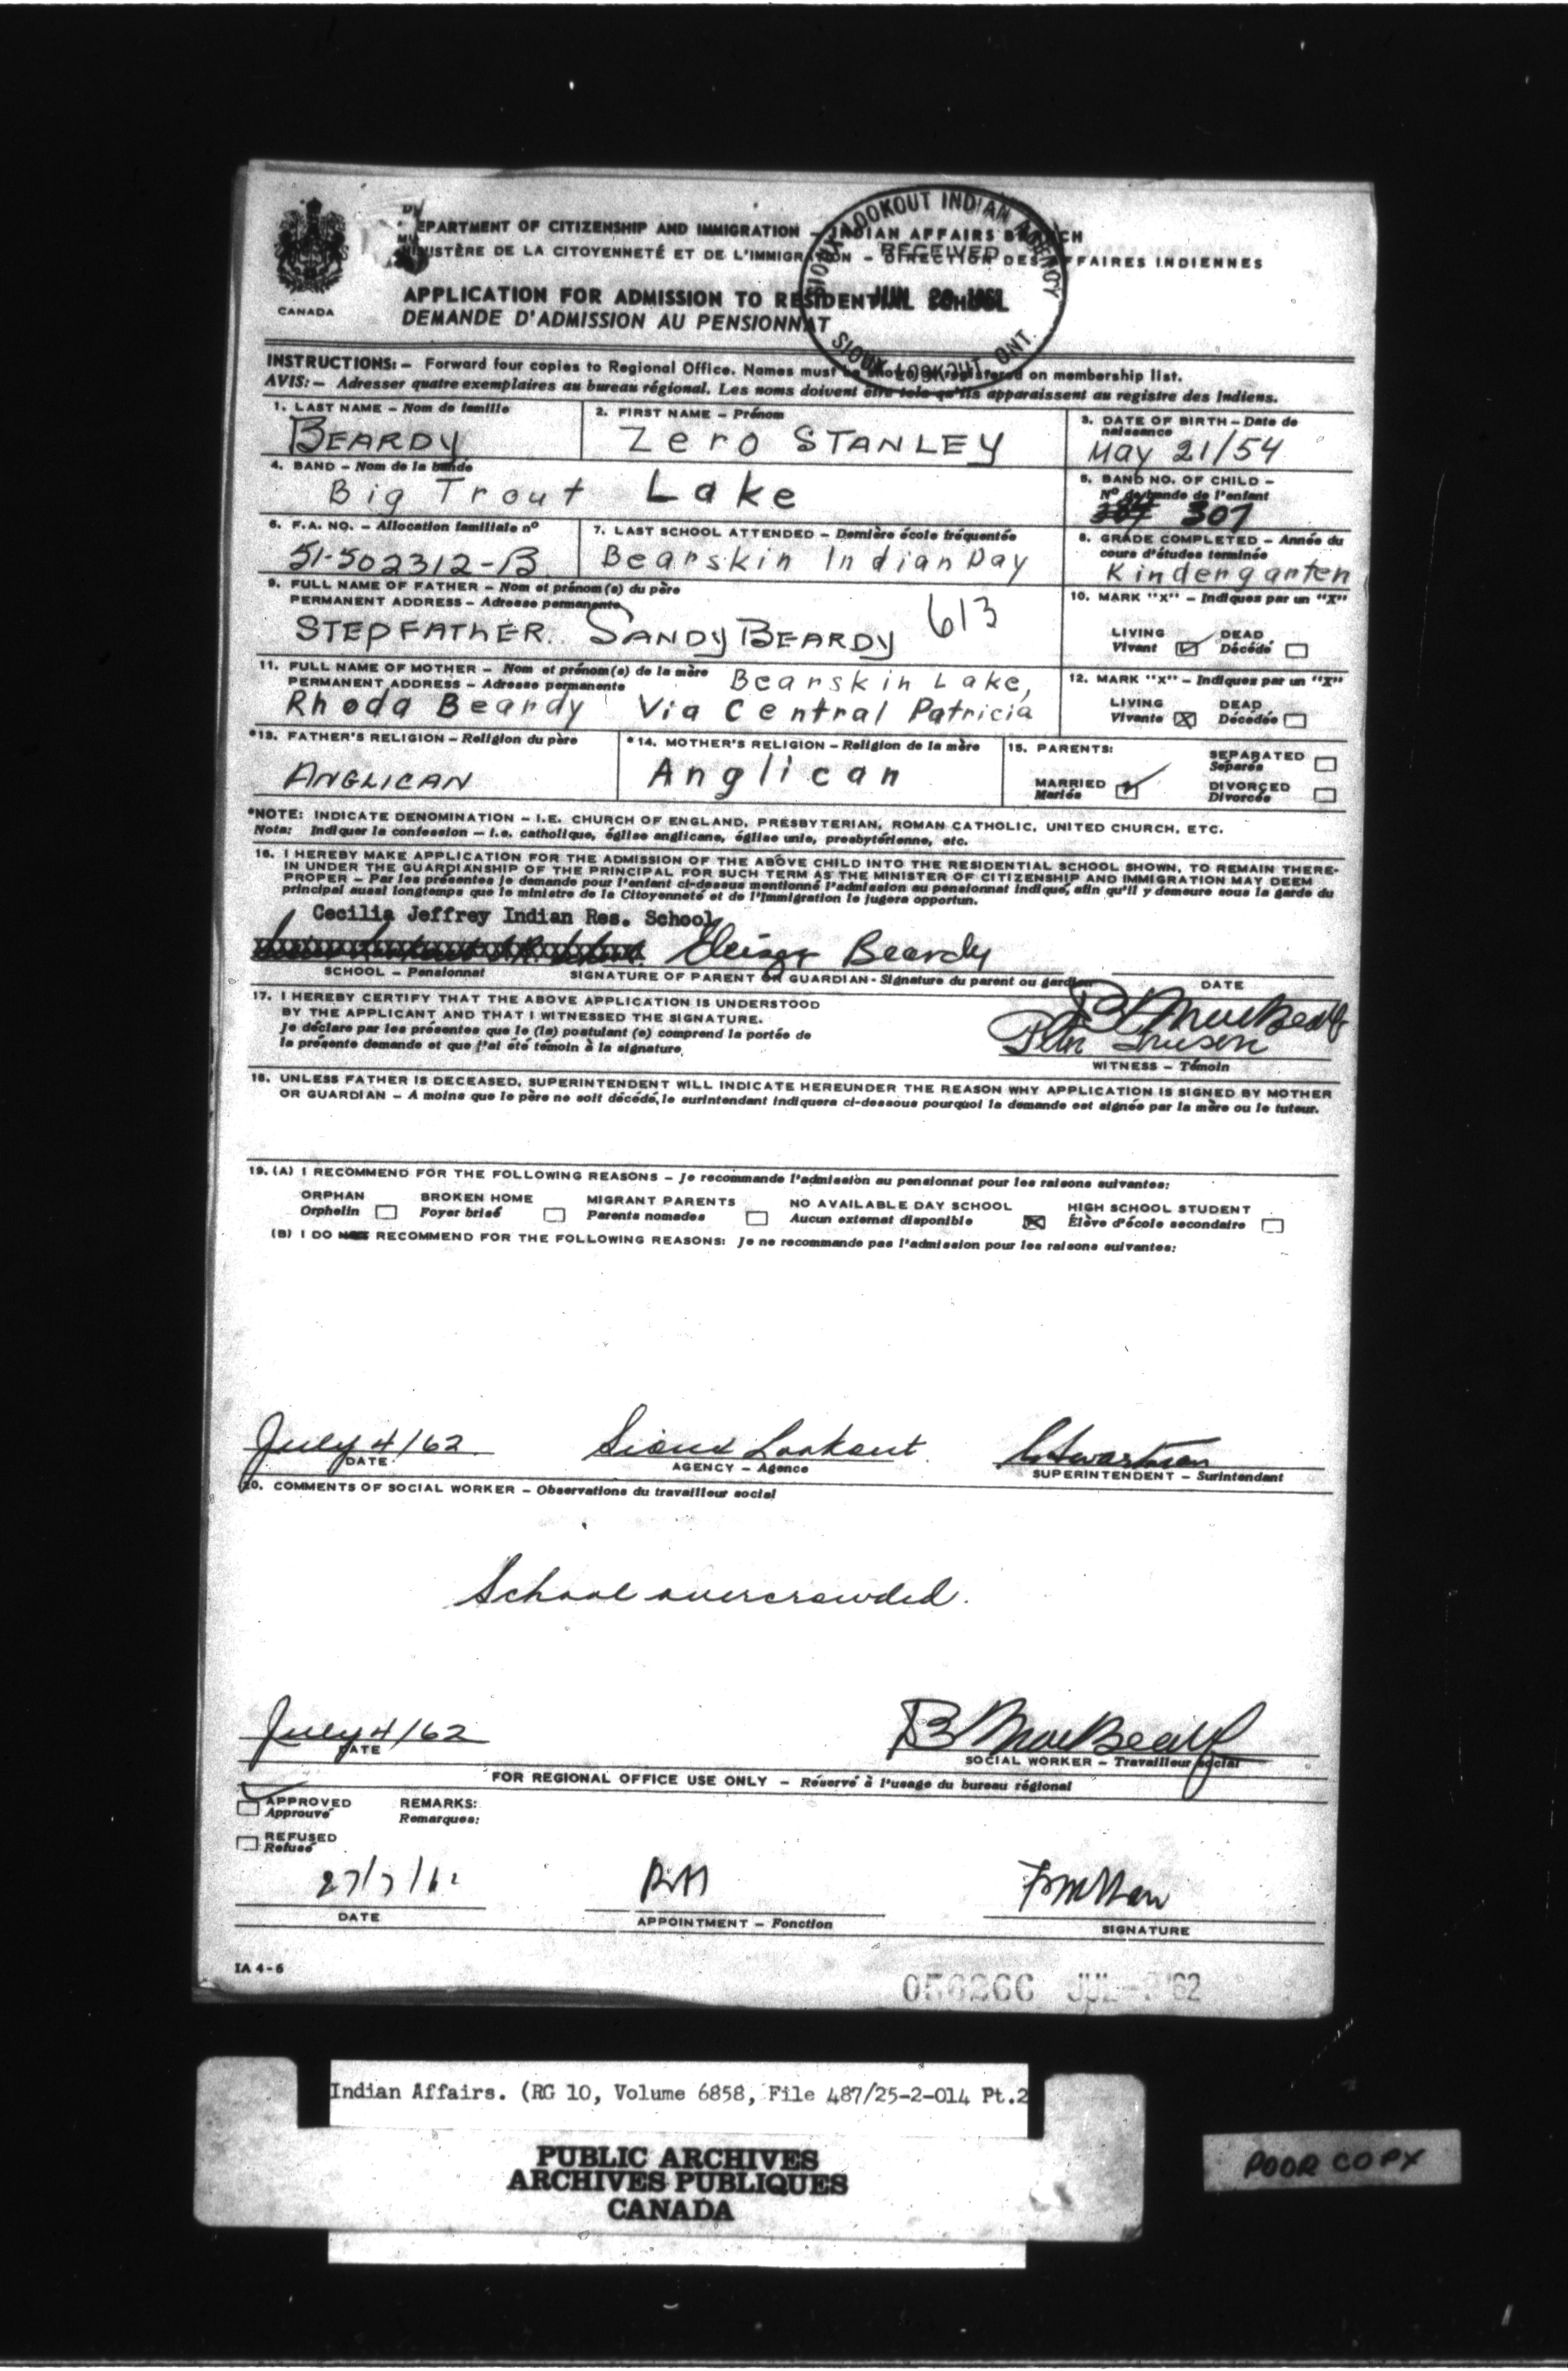 DEPARTMENT OF CITIZENSHIP AND IMMIGRATION - INDIAN AFFAIRS BRANCH
MINISTÈRE DE LA CITOYENNETÉ ET DE L'IMMIGRATION - DIRECTION DES AFFAIRES INDIENNES
SIOUX LOOKOUT INDIAN AGENCY
RECEIVED
SIOUX LOOKOUT ONT.
CANADA
APPLICATION FOR ADMISSION TO RESIDENTIAL SCHOOL
DEMANDE D'ADMISSION AU PENSIONNAT
INSTRUCTIONS:- Forward four copies to Regional Office. Names must be shown as registered on membership list.
AVIS:- Adresser quatre exemplaires au bureau régional. Les noms doivent être tels qu'ils apparaissent au registre des Indiens.
1. LAST NAME - Nom de famille
BEARDY
2. FIRST NAME - Prénom
Zero STANLEY
3. DATE OF BIRTH - Date de naissance
May 21/54
4. BAND - Nom de la bande
Big Trout Lake
5. BAND NO. OF CHILD -
Nº de bande de l'enfant
307
6. F.A. NO. - Allocation familiale nº
51-502312-B
7. LAST SCHOOL ATTENDED - Dernière école fréquentée
Bearskin Indian Day
8. GRADE COMPLETED - Année du
cours d'études terminée
Kindergarten
9. FULL NAME OF FATHER - Nom et prénom(s) du père
PERMANENT ADDRESS - Adresse permanente
STEPFATHER. SANDY BEARDY 613
10. MARK "X" - Indiquez par un "X"
LIVING DEAD
Vivant Décédé
11. FULL NAME OF MOTHER - Nom et prénom(s) de la mère
PERMANENT ADDRESS - Adresse permanente
Bearskin Lake,
Rhoda Beardy Via Central Patricia
12. MARK "X" - Indiquez par un "X"
LIVING DEAD
Vivante Décédée
*13. FATHER'S RELIGION - Religion du père
ANGLICAN
*14. MOTHER'S RELIGION - Religion de la mère
Anglican
15. PARENTS:
SEPARATED
Séparés
MARRIED
Mariés
DIVORCED
Divorcés
*NOTE: INDICATE DENOMINATION - I.E. CHURCH OF ENGLAND, PRESBYTERIAN, ROMAN CATHOLIC, UNITED CHURCH, ETC.
Nota: Indiquer la confession - i.e. catholique, église anglicane, église unie, presbytérienne, etc.
16. I HEREBY MAKE APPLICATION FOR THE ADMISSION OF THE ABOVE CHILD INTO THE RESIDENTIAL SCHOOL SHOWN, TO REMAIN THERE-
IN UNDER THE GUARDIANSHIP OF THE PRINCIPAL FOR SUCH TERM AS THE MINISTER OF CITIZENSHIP AND IMMIGRATION MAY DEEM
PROPER - Par les présentes je demande pour l'enfant ci-dessus mentionné l'admission au pensionnat indiqué, afin qu'il y demeure sous la garde du
principal aussi longtemps que le ministre de la Citoyenneté et de l'Immigration le jugera opportun.
Cecilia Jeffrey Indian Res. School
Beardy
SCHOOL - Pensionnat
SIGNATURE OF PARENT OR GUARDIAN - Signature du parent ou gardien
DATE
17. I HEREBY CERTIFY THAT THE ABOVE APPLICATION IS UNDERSTOOD
BY THE APPLICANT AND THAT I WITNESSED THE SIGNATURE.
Je déclare par les présentes que le (la) postulant (e) comprend la portée de
la présente demande et que j'ai été témoin à la signature.
WITNESS - Témoin
18. UNLESS FATHER IS DECEASED, SUPERINTENDENT WILL INDICATE HEREUNDER THE REASON WHY APPLICATION IS SIGNED BY MOTHER
OR GUARDIAN - A moins que le père ne soit décédé, le surintendant indiquera ci-dessous pourquoi la demande est signée par la mère ou le tuteur.
19. (A) I RECOMMEND FOR THE FOLLOWING REASONS - Je recommande l'admission au pensionnat pour les raisons suivantes:
ORPHAN BROKEN HOME MIGRANT PARENTS NO AVAILABLE DAY SCHOOL HIGH SCHOOL STUDENT
Orphelin Foyer brisé Parents nomades Aucun externat disponible Élève d'école secondaire
(B) I DO NOT RECOMMEND FOR THE FOLLOWING REASONS: Je ne recommande pas l'admission pour les raisons suivantes:
July 4/62 Sioux Lookout
DATE AGENCY - Agence SUPERINTENDENT - Surintendant
20. COMMENTS OF SOCIAL WORKER - Observations du travailleur social
School overcrowded.
July 4/62
DATE SOCIAL WORKER - Travailleur social
FOR REGIONAL OFFICE USE ONLY - Réservé à l'usage du bureau régional
APPROVED REMARKS:
Approuvé Remarques:
REFUSED
Refusé
DATE APPOINTMENT - Fonction SIGNATURE
IA 4-6
Indian Affairs. (RG 10, Volume 6858, File 487/25-2-014 Pt.2
PUBLIC ARCHIVES
ARCHIVES PUBLIQUES
CANADA
POOR COPY